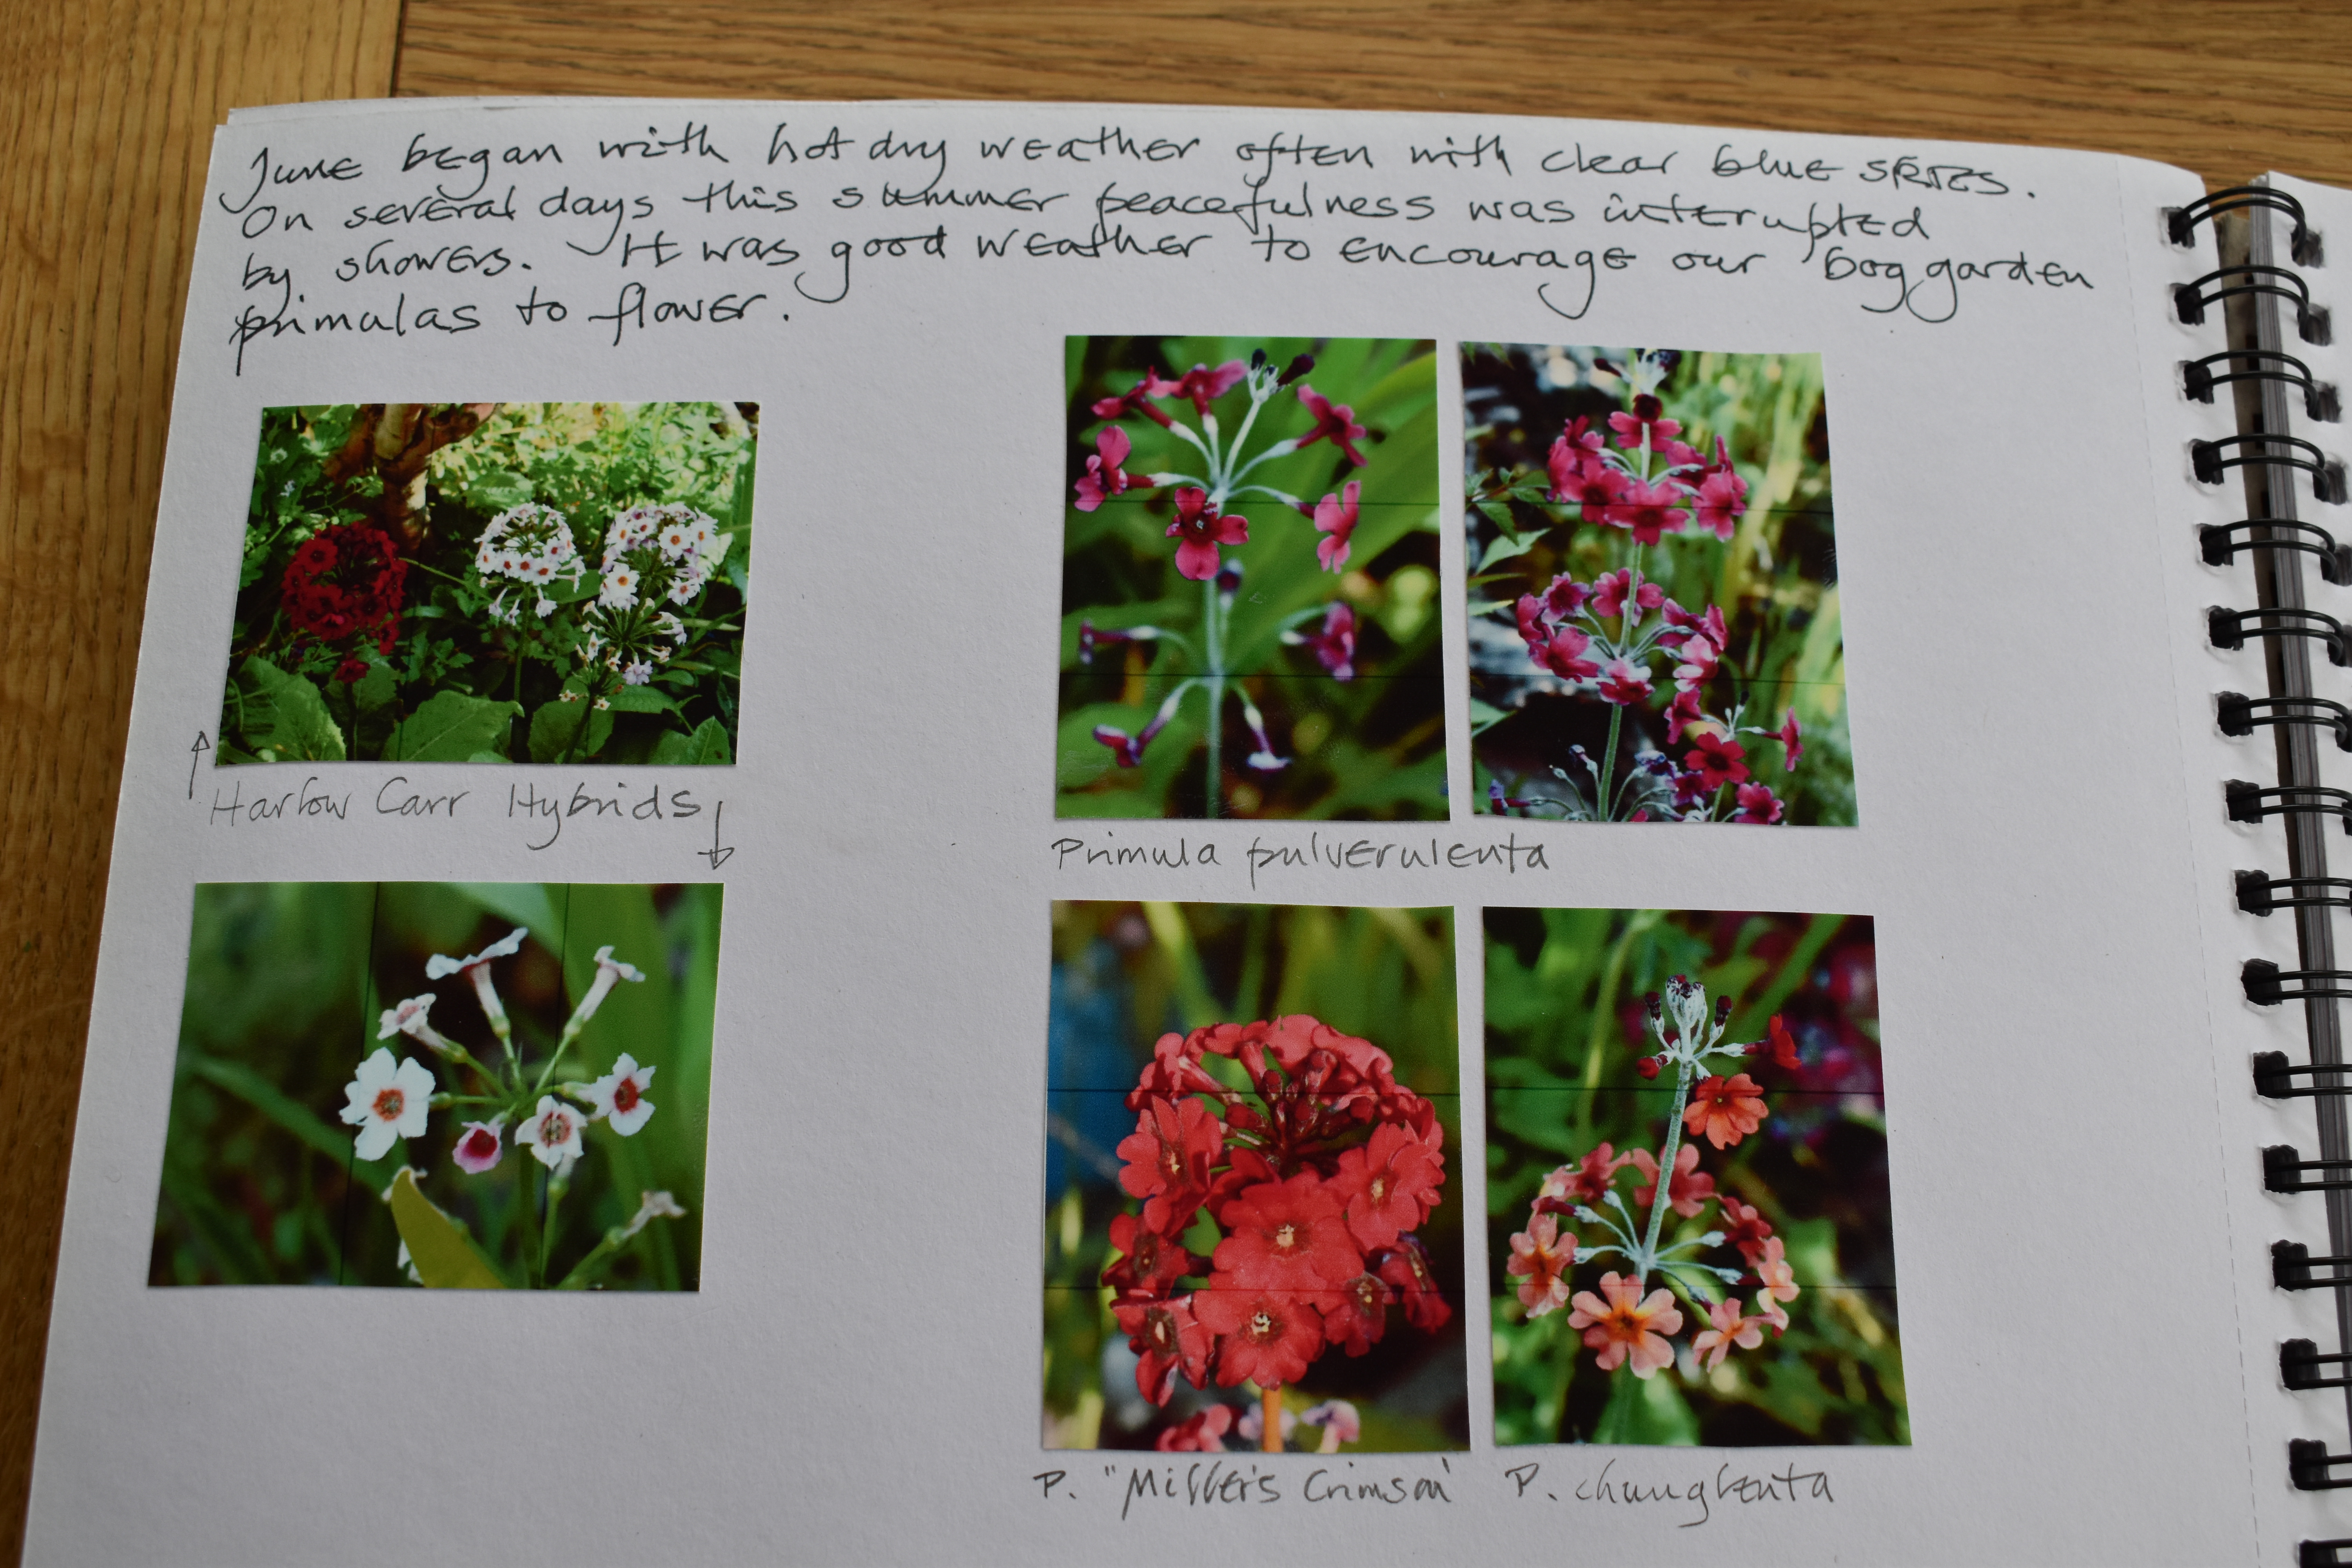 June began with hot dry weather often with clear blue skies.
On several days this summer peacefulness was interrupted
by showers. It was good weather to encourage our bog garden
primulas to flower.
Harlow Carr Hybrids
Primula pulverulenta
P. "Miller's Crimson'
P. chunglenta